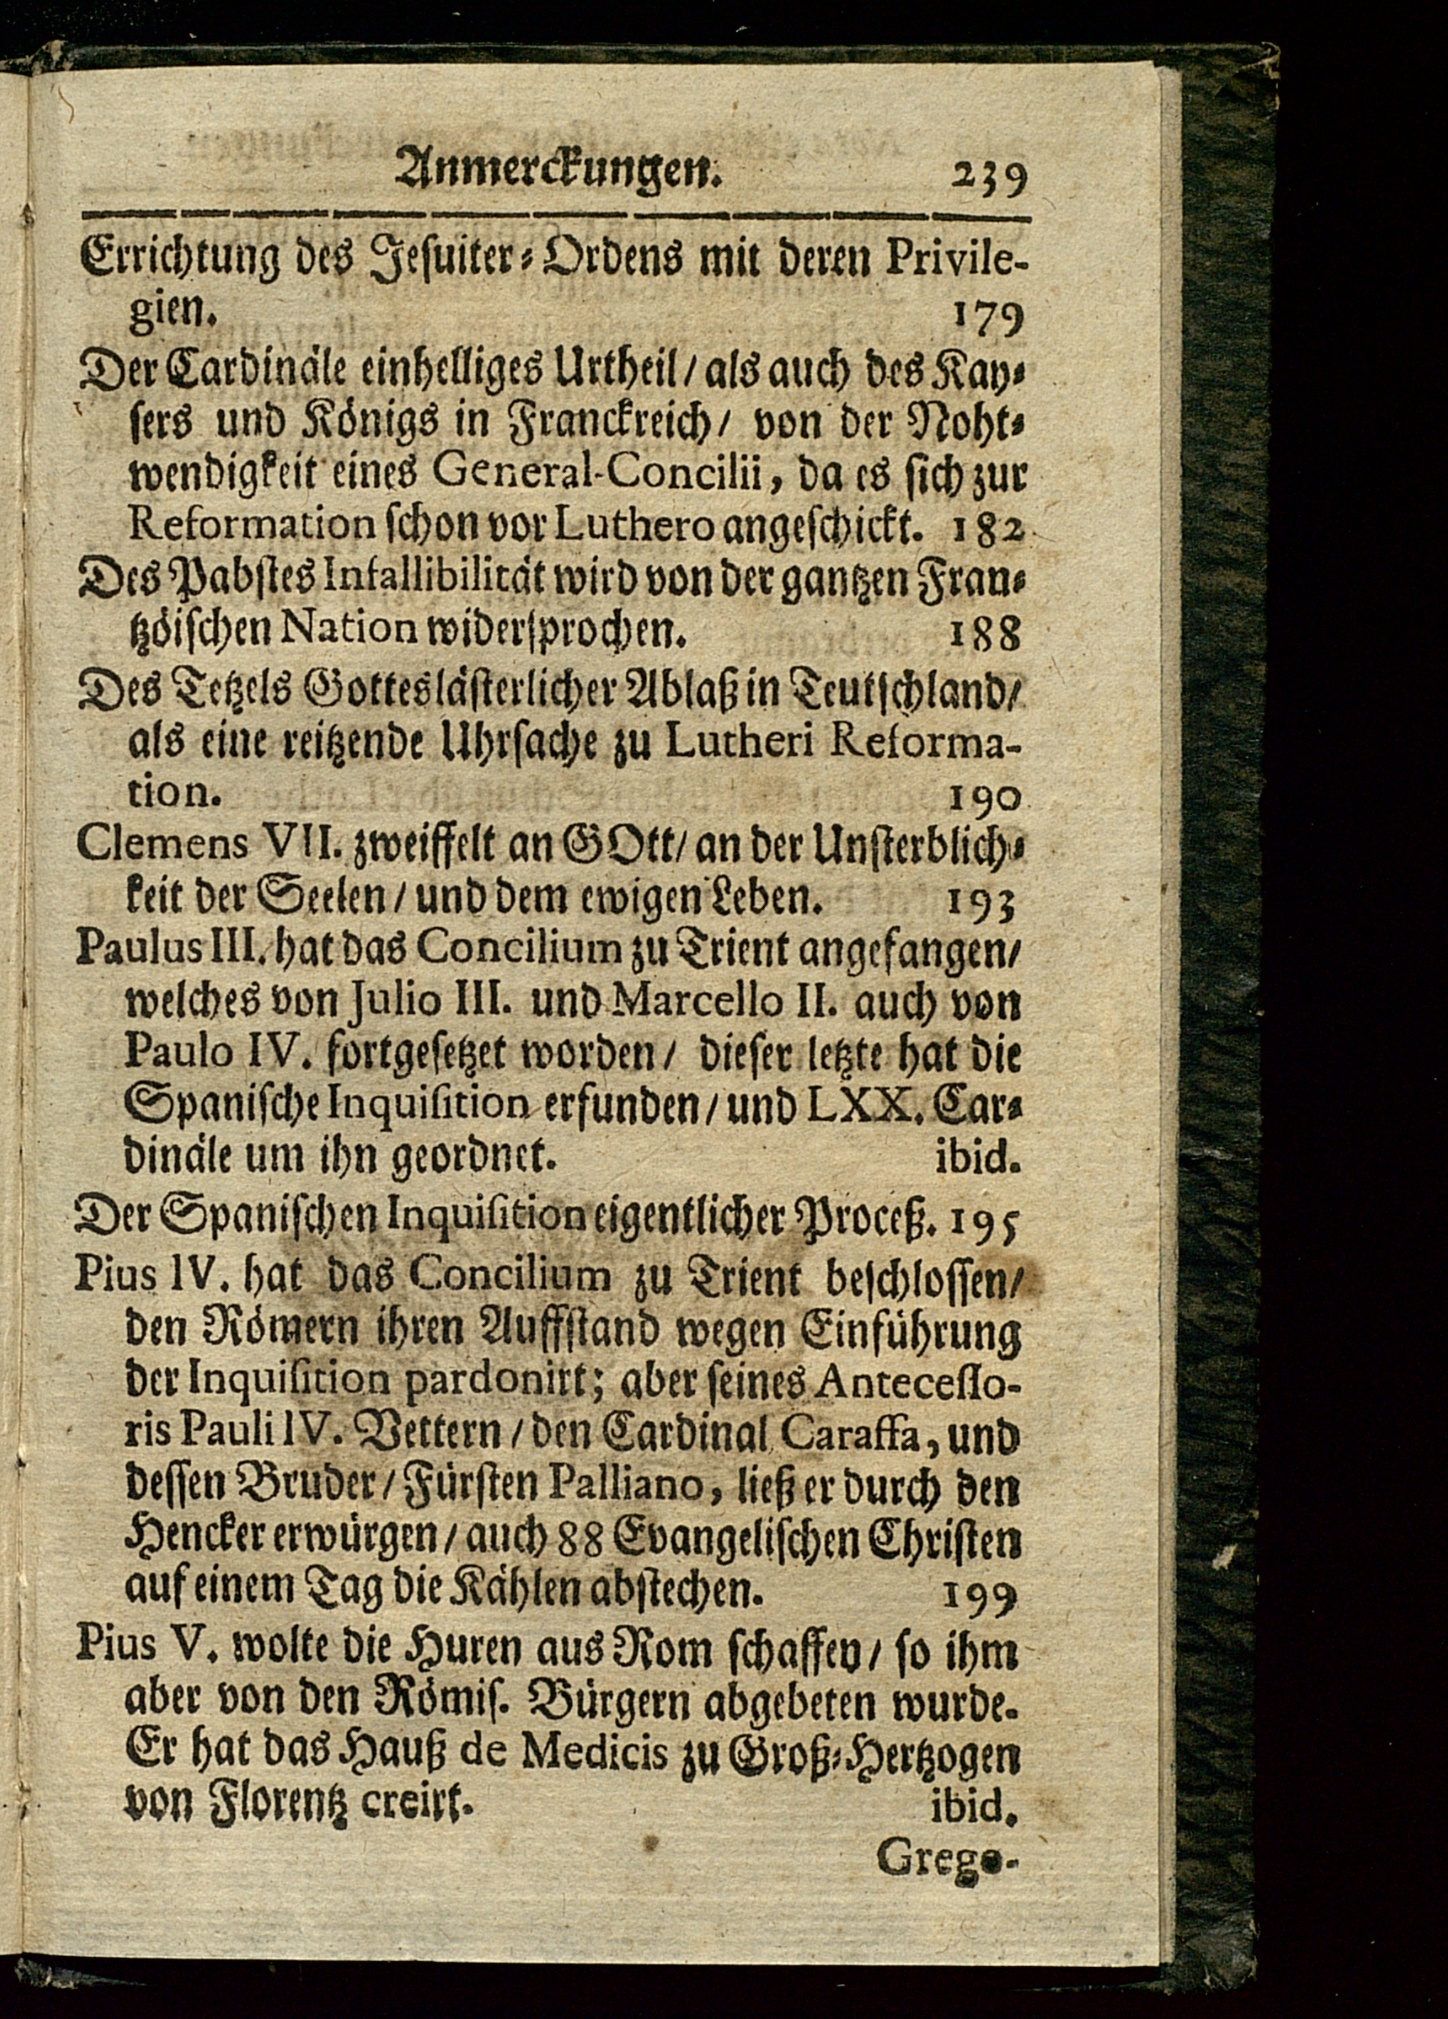 Anmerckungen. 239
Errichtung des Jesuiter-Ordens mit deren Privile-
gien. 179
Der Cardinäle einhelliges Urtheil/ als auch des Kay-
sers und Königs in Franckreich/ von der Noht-
wendigkeit eines General-Concilii, da es sich zur
Reformation schon vor Luthero angeschickt. 182
Des Pabstes Infallibilität wird von der gantzen Fran-
tzöischen Nation widersprochen. 188
Des Tetzels Gotteslästerlicher Ablaß in Teutschland/
als eine reitzende Uhrsache zu Lutheri Reforma-
tion. 190
Clemens VII. zweiffelt an GOtt/ an der Unsterblich-
keit der Seelen/ und dem ewigen Leben. 193
Paulus III. hat das Concilium zu Trient angefangen/
welches von Julio III. und Marcello II. auch von
Paulo IV. fortgesetzet worden/ dieser letzte hat die
Spanische Inquisition erfunden/ und LXX. Car-
dinäle um ihn geordnet. ibid.
Der Spanischen Inquisition eigentlicher Proceß. 195
Pius IV. hat das Concilium zu Trient beschlossen/
den Römern ihren Auffstand wegen Einführung
der Inquisition pardonirt; aber seines Antecesso-
ris Pauli IV. Vettern/ den Cardinal Caraffa, und
dessen Bruder/ Fürsten Palliano, ließ er durch den
Hencker erwürgen/ auch 88 Evangelischen Christen
auf einem Tag die Kählen abstechen. 199
Pius V. wolte die Huren aus Rom schaffen/ so ihm
aber von den Römis. Bürgern abgebeten wurde.
Er hat das Hauß de Medicis zu Groß-Hertzogen
von Florentz creirt. ibid.
Grego-